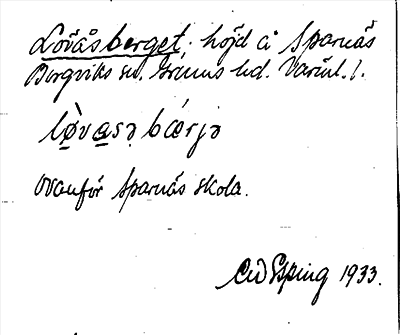 Lövåsberget. höjd å Sparnäs
Borgviks sn, Grums hd. Värml. l.
lø̀vasə bærjə
ovanför Sparnäs skola.
Esping 1933.